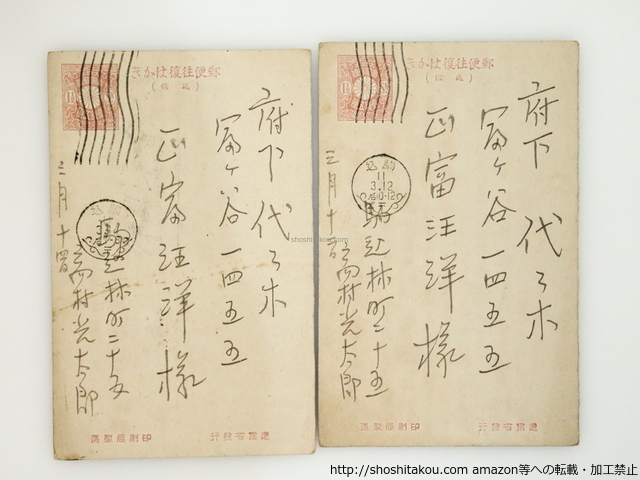 郵便往復はかき
(返信)
府下 代々木
富ヶ谷一四五五
正富汪洋様
三月十
駒込林町二十五
高村光太郎
印刷局製造
逓信省発行
郵便往復はかき
(返信)
府下 代々木
富ヶ谷一四五五
正富汪洋様
三月十
駒込
11
3.12
10-12
駒込林町二十五
高村光太郎
印刷局製造
逓信省発行
shoshitakou.com
http://shoshitakou.com amazon等への転載・加工禁止